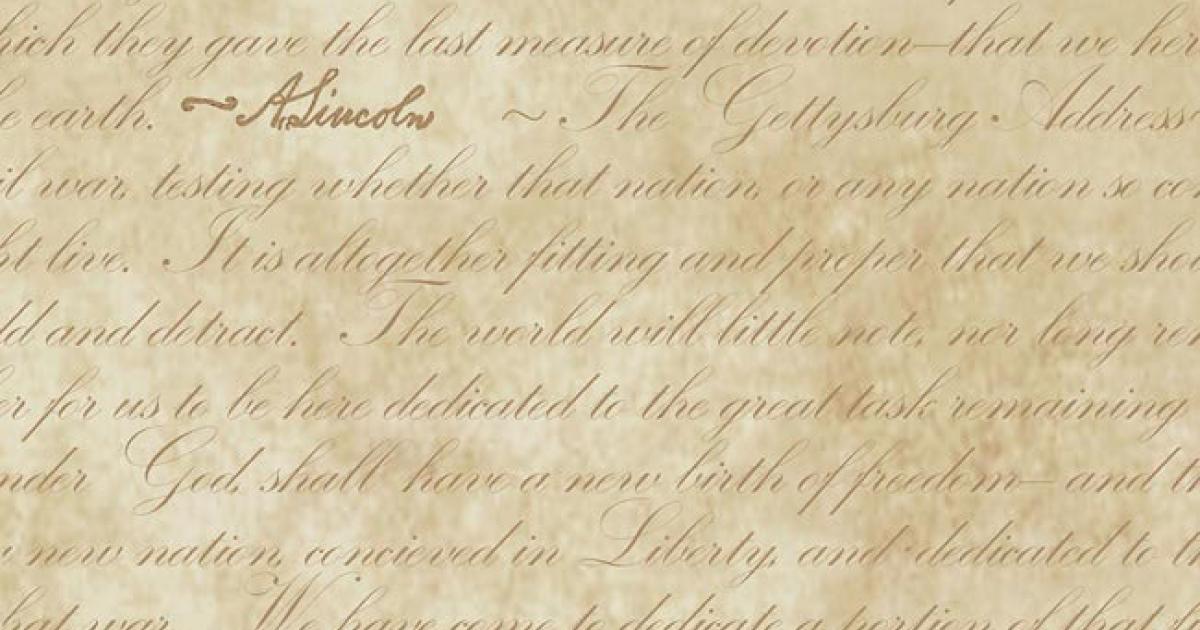 hich they gave the last measure of devotion—that we her
e earth. ~A. Lincoln ~ The Gettysburg Address
il war, testing whether that nation, or any nation so co
ht live. It is altogether fitting and proper that we shou
dd and detract. The world will little note, nor long rem
er for us to be here dedicated to the great task remaining
nder God, shall have a new birth of freedom— and th
new nation, concieved in Liberty, and dedicated to th
hat war. We have come to dedicate a portion of that